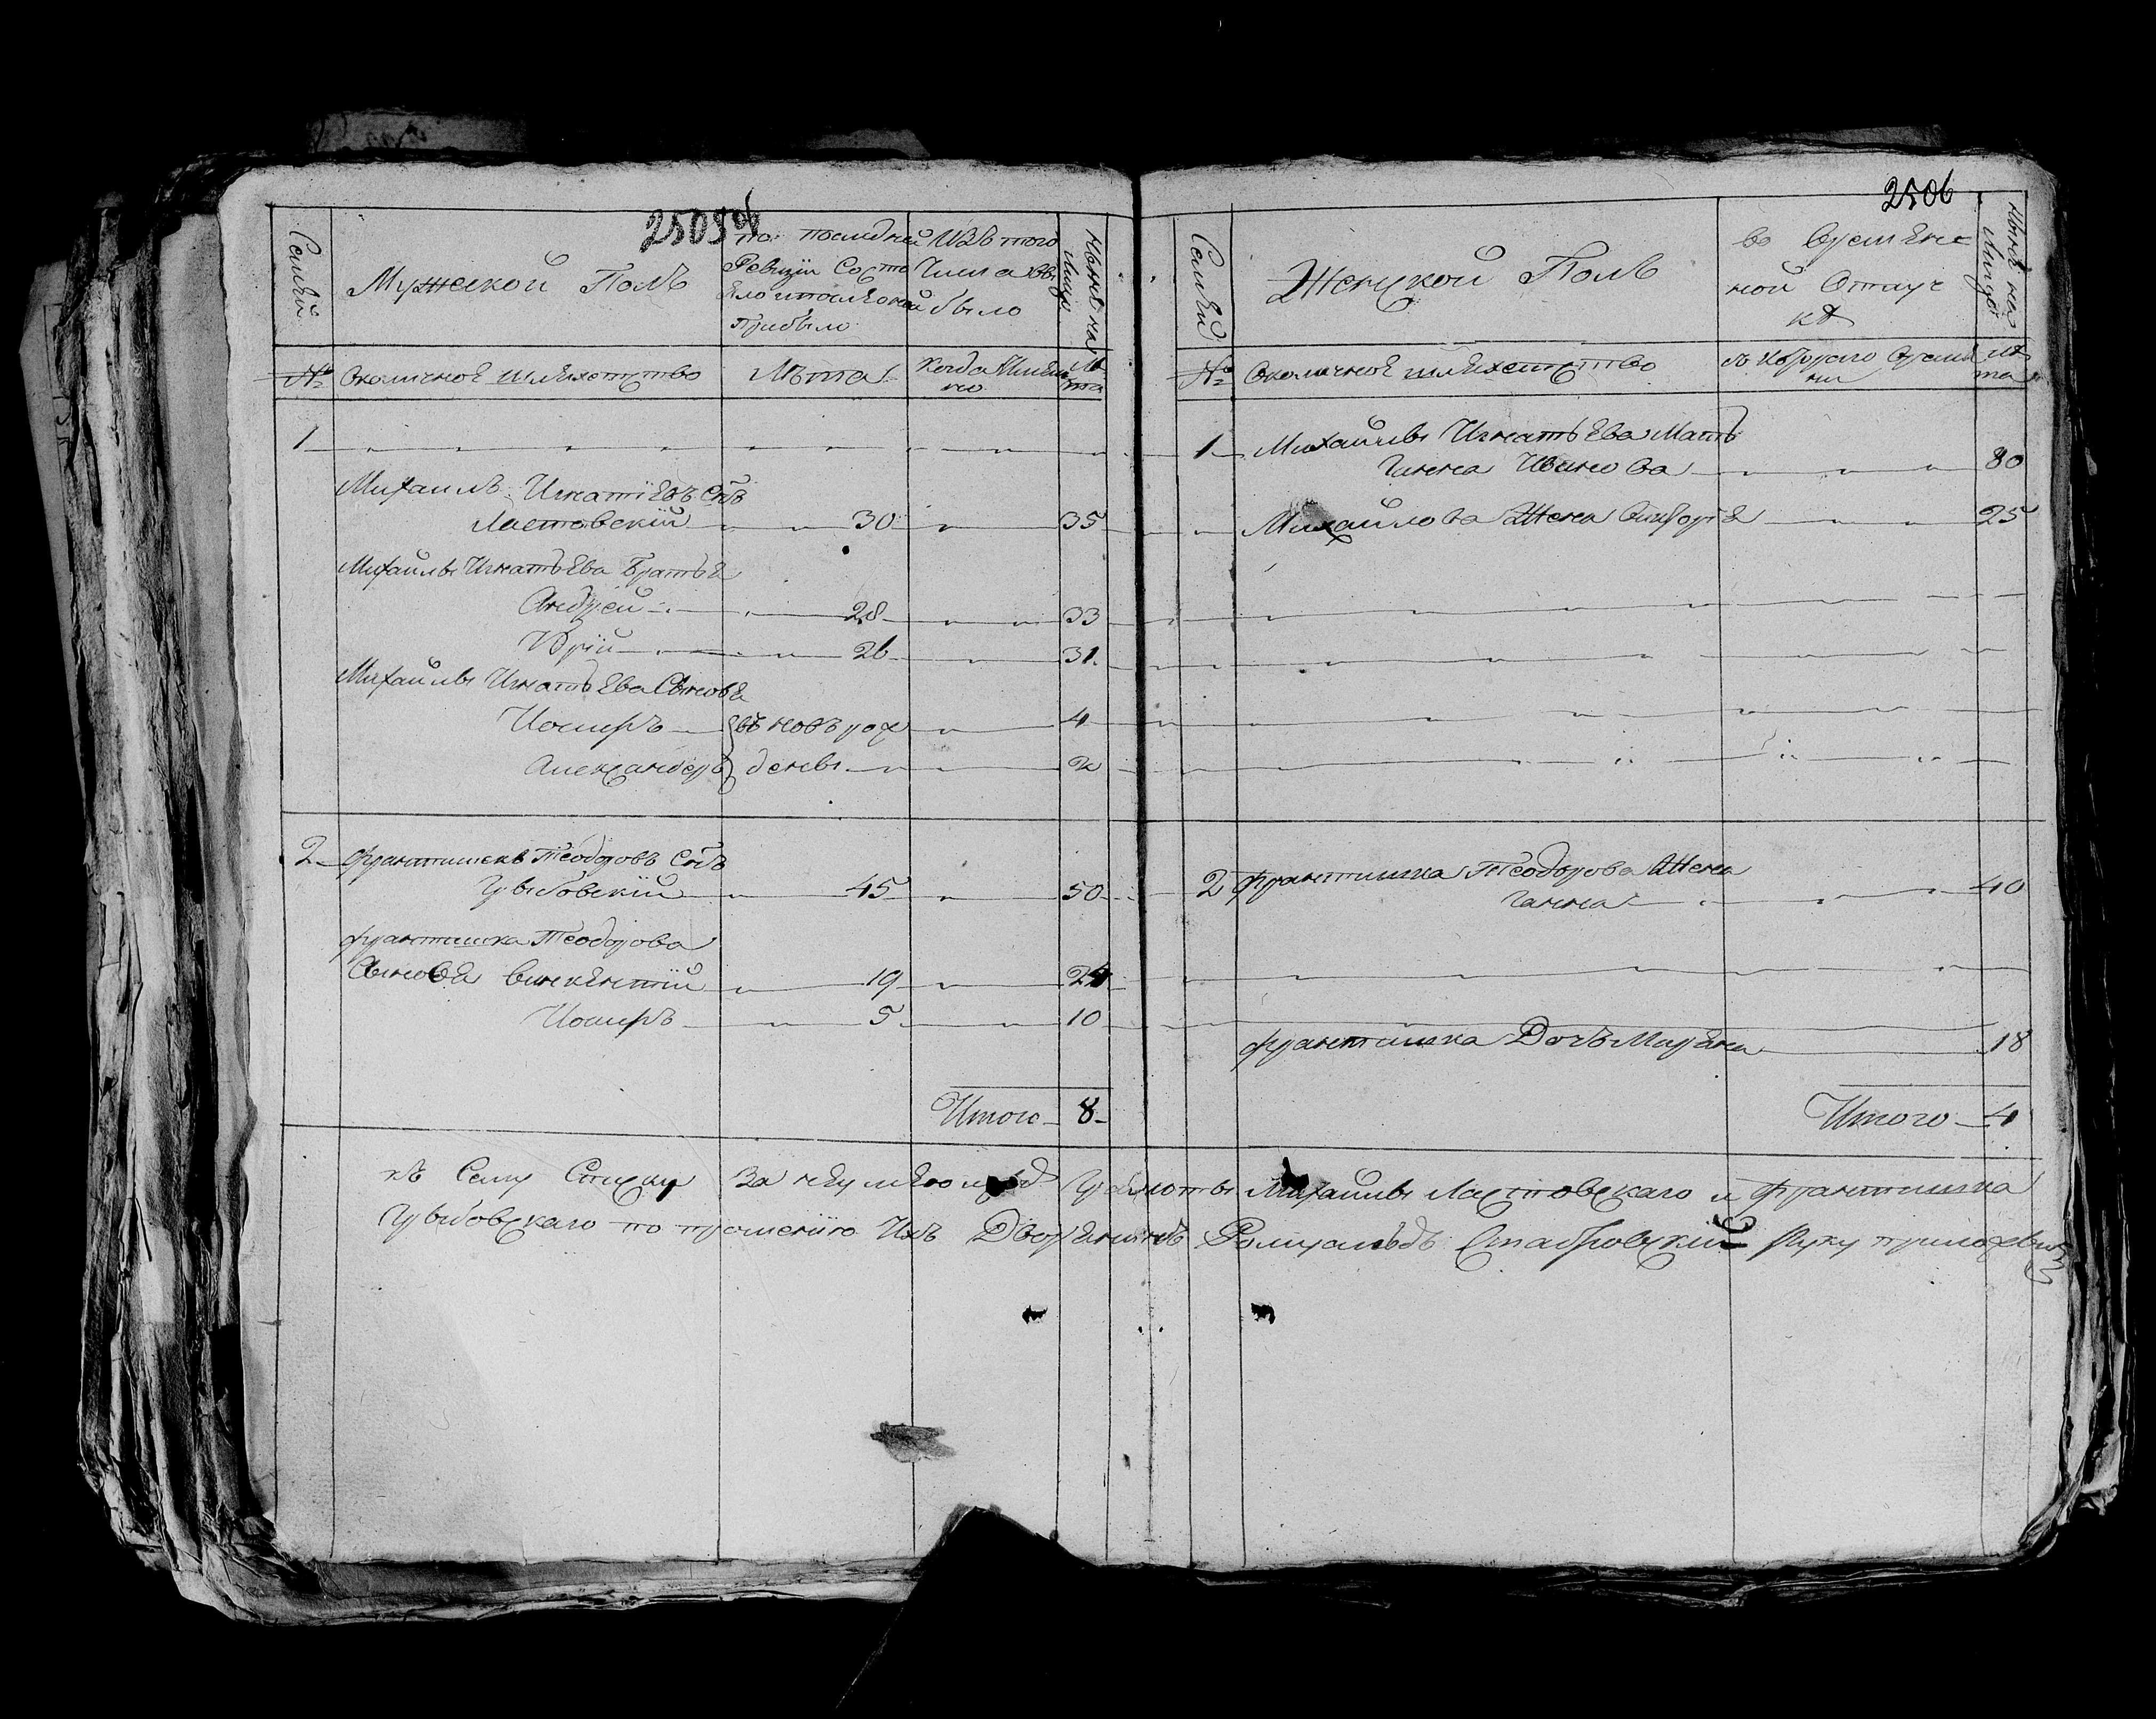 2505об
Семей
Мужеской Полъ
по последней
Ревизіи Состо
яло и после оной
Прибыло
Изъ того
Числа Вы
было
Ныне на
лицо
№
Околичное шляхетство
Лѣта
Когда Имян
но
Лѣ
та
1
Михаилъ Игнатіевъ Сынъ
Ластовскій 30 35
Михайлы Игнатьева Братья
Андрей 28 33
Юрій 26 31
Михайлы Игнатьева Сыновья
Іосифъ въ новь рож 4
Александеръ денны 2
2 Франтишекъ Теодоровъ Сынъ
Цыбовскій 45 50
Франтишка Теодорова
Сыновья Викентій 19 24
Іосифъ 5 10
Итого 8
2506
Семей
Женской Полъ
во Времян
ной Отлуч
кѣ
Ныне на
Лицо
№
Околичное шляхетство
съ Котораго Время
ни
лѣ
та
1 Михайлы Игнатьева Мать
Ганна Иванова 80
Михайлова Жена 25
2 Франтишка Теодорова Жена
Ганна 40
Франтишка Дочъ Марьяна 18
Итого 4
къ Сему Списку За неумеющихъ Грамоты Михайлы Ластовскаго и Франтишка
Цыбовскаго по прошенію Ихъ Дворянинъ Ромуальдъ Стабровскій Руку приложилъ